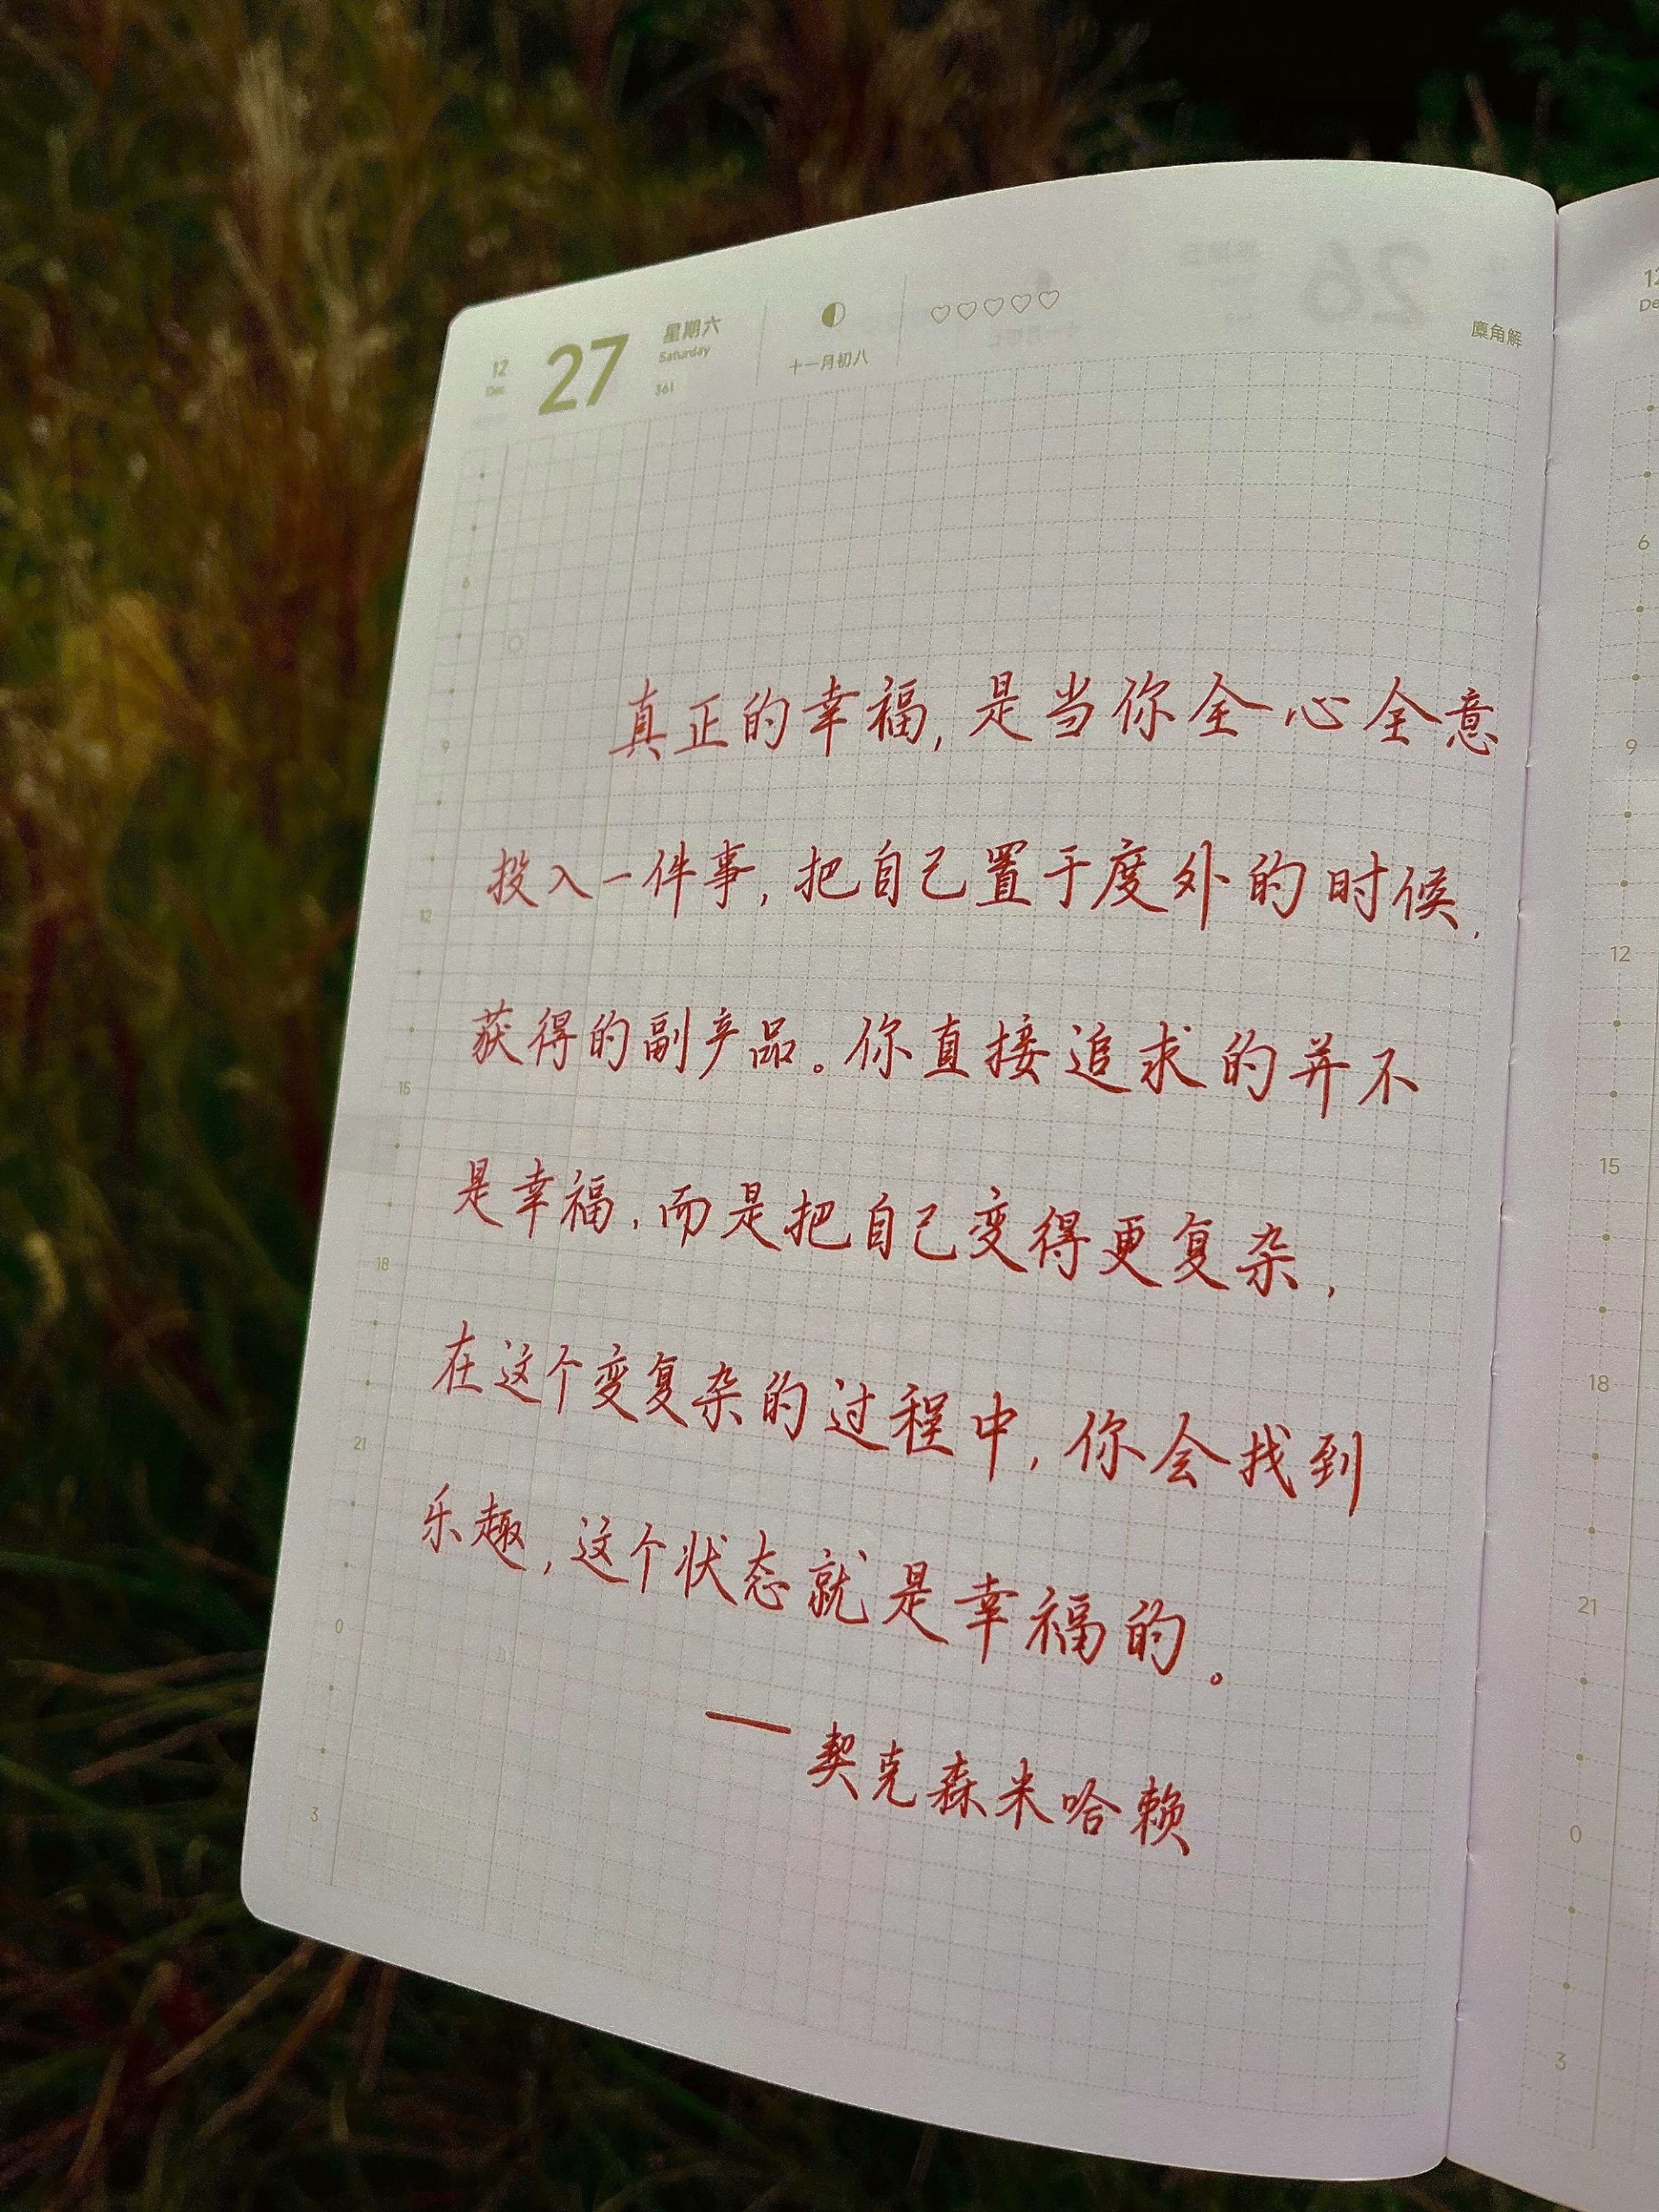 12
Dec
27
星期六
Saturday
361
十一月初八
麋角解
真正的幸福,是当你全心全意
投入一件事,把自己置于度外的时候,
获得的副产品。你直接追求的并不
是幸福,而是把自己变得更复杂,
在这个变复杂的过程中,你会找到
乐趣,这个状态就是幸福的。
—契克森米哈赖
6
9
12
15
18
21
0
3
12
De
6
9
12
15
18
21
0
3